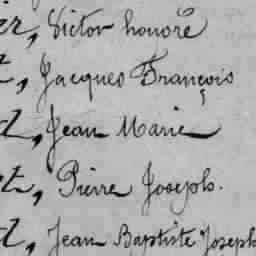 er, Victor honoré
t, Jacques François
t, Jean Marie
t, Pierre Joseph.
t, Jean Baptiste Joseph